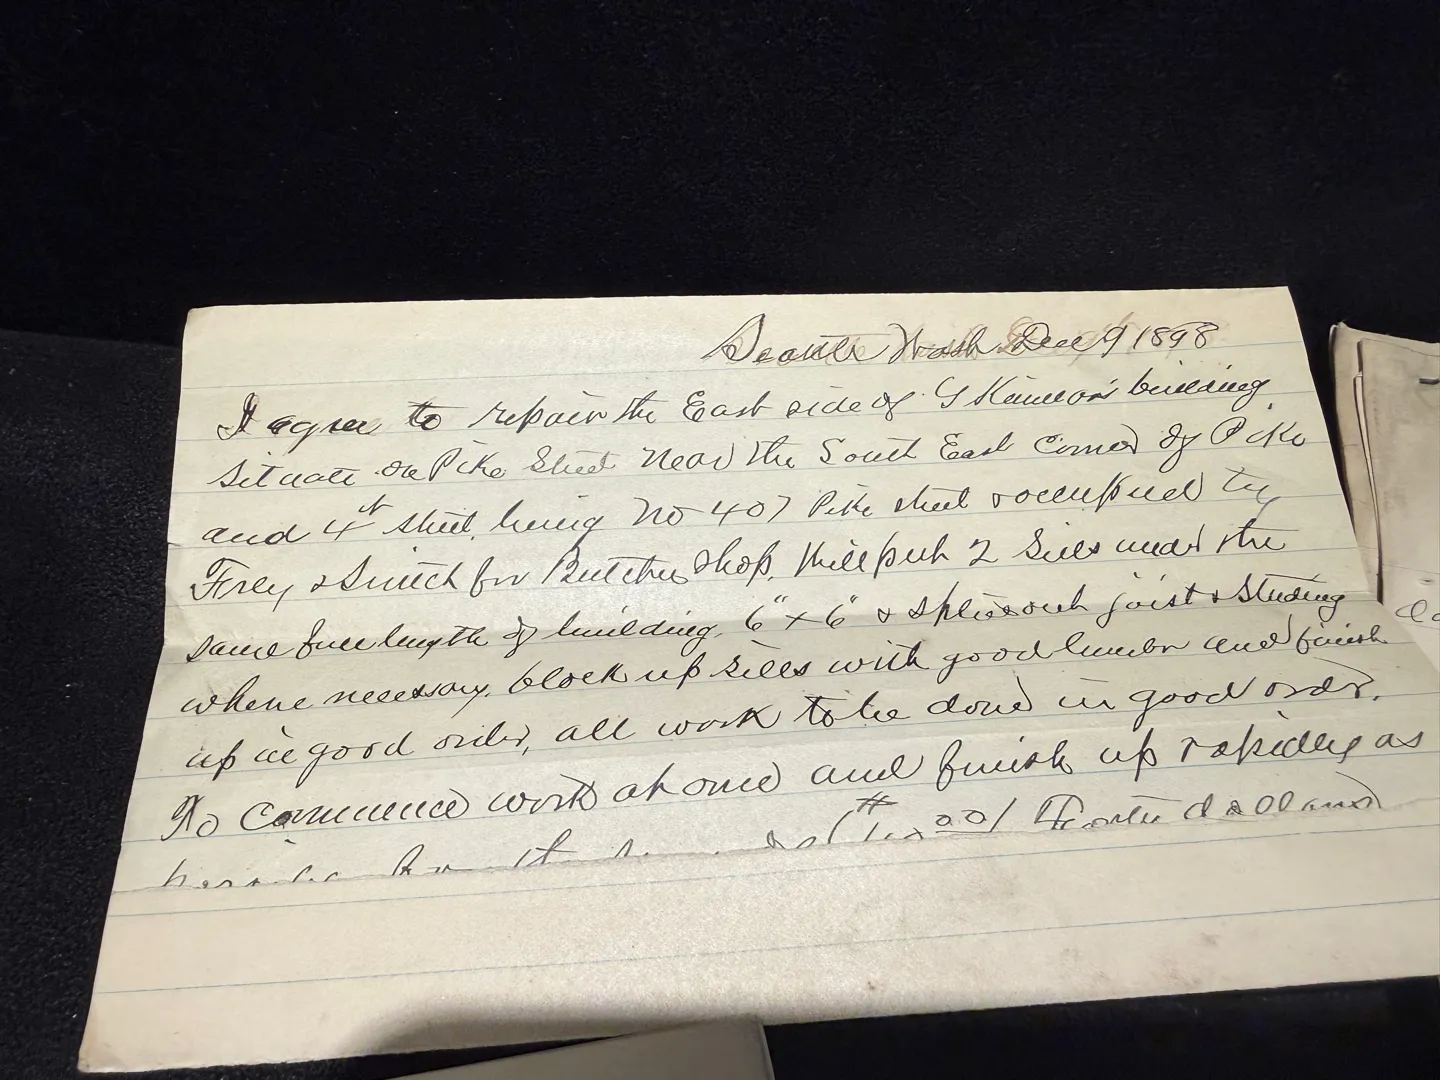 Seattle Wash Dec 9 1898
I agree to repair the East side of G Kinnear's building
situate on Pike Street near the South East Corner of Pike
and 4th street, being No 407 Pike street & occupied by
Frey & Smitch for Butcher shop, Will put 2 Sills under the
same full length of building, 6" x 6" & splice out joist & studing
where necessary, block up sills with good lumber and finish
up in good order, all work to be done in good order.
To commence work at once and finish up rapidly as
Forty dollars